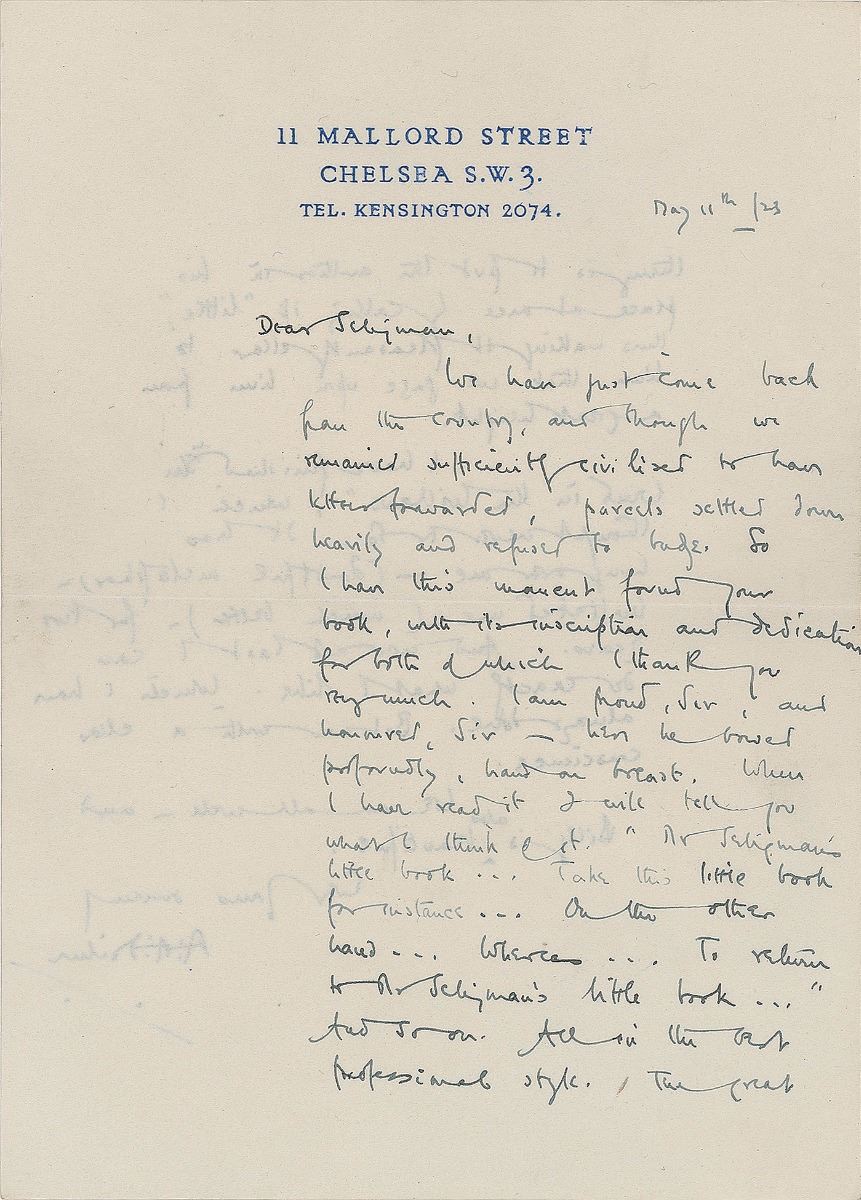 11 MALLORD STREET
CHELSEA S.W.3.
TEL. KENSINGTON 2074.
May 11th /23
Dear Seligman,
We have just come back
from the country, and though we
remained sufficiently civilised to have
letters forwarded, parcels settled down
heavily and refused to budge. So
I have this moment found your
book, with its inscription and dedication
for both of which I thank you
very much. I am proud, Sir, and
honoured, Sir — here he bowed
profoundly, hand on breast. When
I have read it I will tell you
what I think of it. "Mr Seligman's
little book ... Take this little book
for instance ... On the other
hand ... Whereas .... To return
to Mr Seligman's little book ..."
And so on. All in the best
professional style. The great